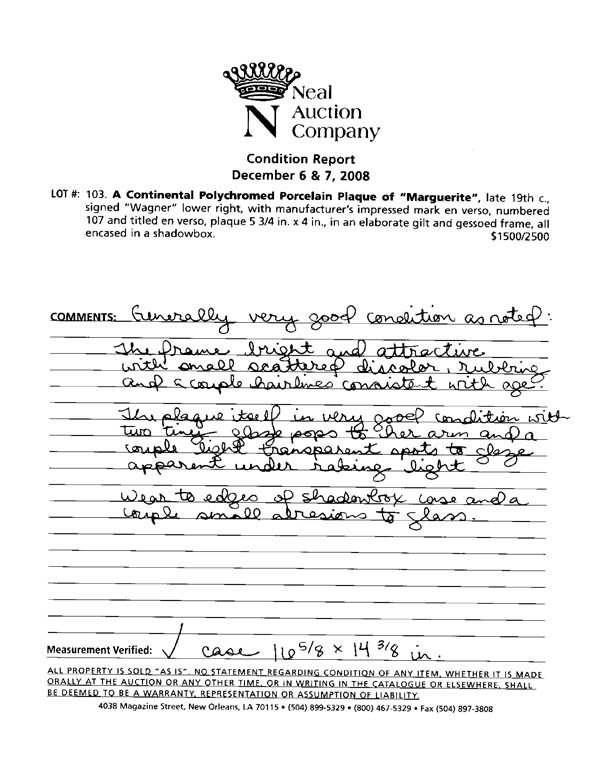 Neal
N Auction
Company
Condition Report
December 6 & 7, 2008
LOT #: 103. A Continental Polychromed Porcelain Plaque of "Marguerite", late 19th c.,
signed "Wagner" lower right, with manufacturer's impressed mark en verso, numbered
107 and titled en verso, plaque 5 3/4 in. x 4 in., in an elaborate gilt and gessoed frame, all
encased in a shadowbox. $1500/2500
COMMENTS: Generally very good condition as noted:
The frame bright and attractive
with small scattered discolor, rubbing
and a couple hairlines consistent with age.
The plaque itself in very good condition with
two tiny glaze pops to her arm and a
couple light transparent spots to glaze
apparent under raking light
Wear to edges of shadowbox case and a
couple small abresions to glass.
Measurement Verified: √ case 16 5/8 x 14 3/8 in.
ALL PROPERTY IS SOLD "AS IS". NO STATEMENT REGARDING CONDITION OF ANY ITEM, WHETHER IT IS MADE
ORALLY AT THE AUCTION OR ANY OTHER TIME, OR IN WRITING IN THE CATALOGUE OR ELSEWHERE, SHALL
BE DEEMED TO BE A WARRANTY, REPRESENTATION OR ASSUMPTION OF LIABILITY.
4038 Magazine Street, New Orleans, LA 70115 • (504) 899-5329 • (800) 467-5329 • Fax (504) 897-3808